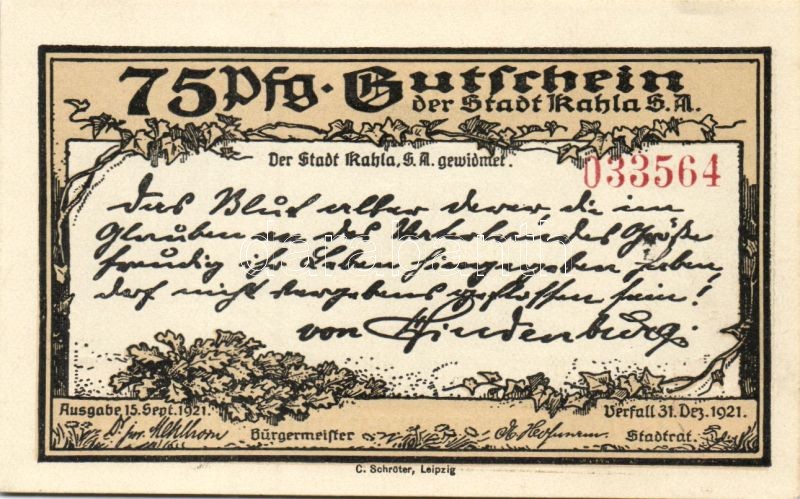 75 Pfg. Gutschein
der Stadt Kahla S.A.
Der Stadt Kahla, S.A. gewidmet.
033564
Das Blut aller derer die im
Glauben an des Vaterlandes Größe
freudig ihr Leben hingegeben haben,
darf nicht vergebens geflossen sein!
von Hindenburg.
Ausgabe 15. Sept. 1921.
Verfall 31. Dez. 1921.
Bürgermeister
Stadtrat.
C. Schröter, Leipzig